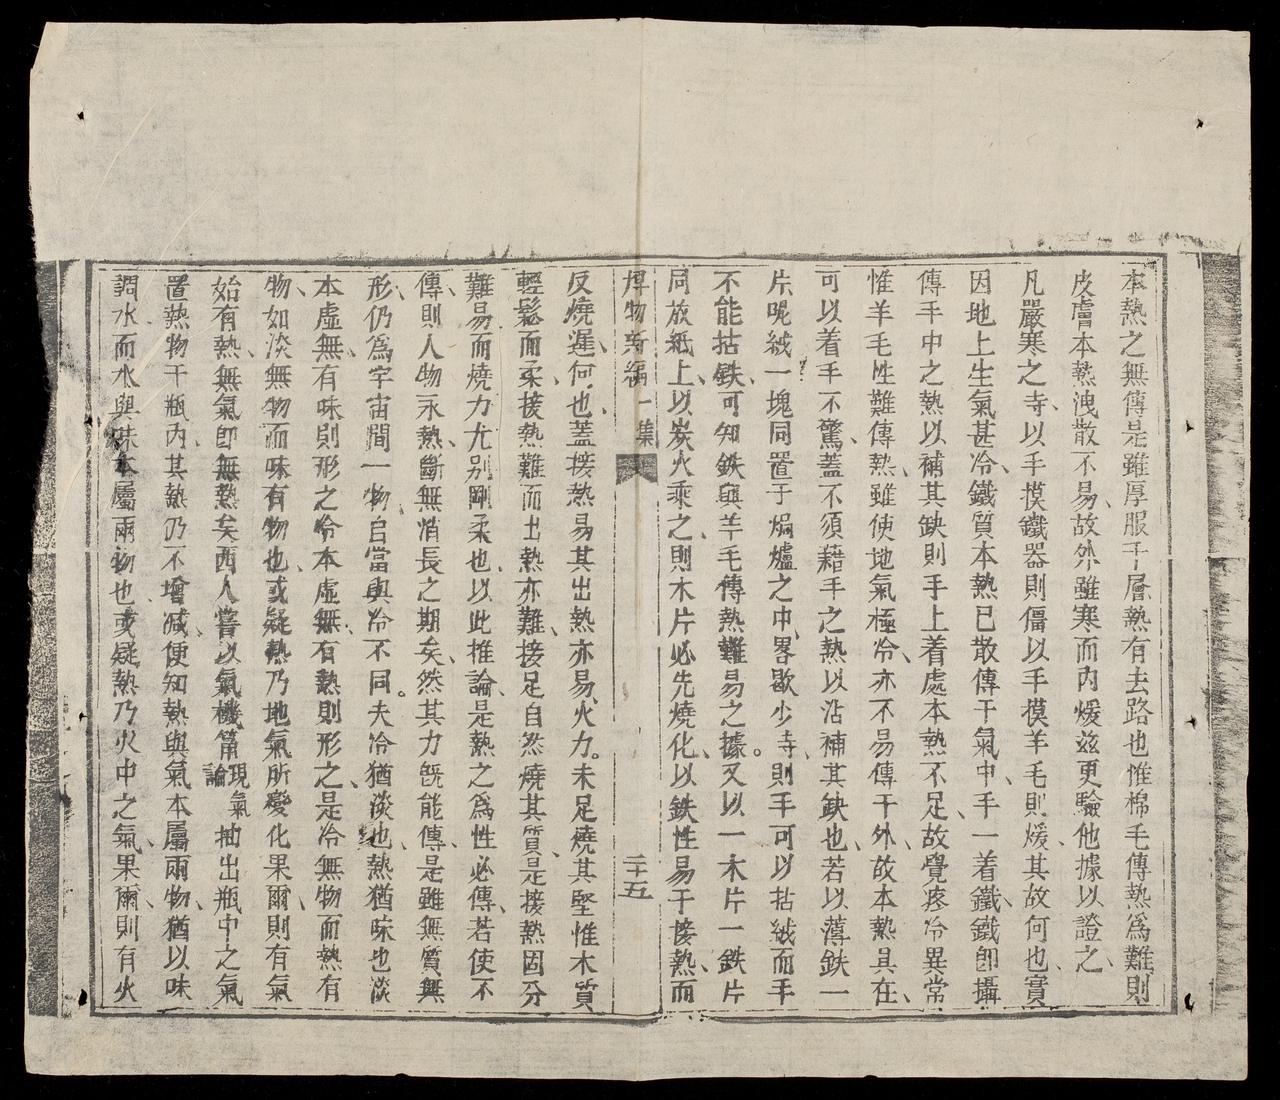 本熱之無傳是雖厚服千層熱有去路也惟棉毛傳熱爲難則
皮膚本熱洩散不易、故外雖寒而內煖茲更驗他據以證之、
凡嚴寒之寺、以手摸鐵器則僵以手摸羊毛則煖、其故何也、實
因地上生氣甚冷、鐵質本熱已散傳于氣中、手一着鐵、鐵卽攝
傳手中之熱以補其缺則手上着處本熱不足、故覺疼冷異常
惟羊毛性難傳熱、雖使地氣極冷、亦不易傳于外、故本熱具在、
可以着手不驚、蓋不須藉手之熱以沾補其缺也、若以薄鉄一
片呢絨一塊同置于焗爐之中、畧歇少寺、則手可以拈絨而手
不能拈鉄、可知鉄與羊毛傳熱難易之據。又以一木片一鉄片
同放紙上、以炭火乘之、則木片必先燒化、以鉄性易于接熱、而
博物新編一集
二十五
反燒遲、何也、蓋接熱易其出熱亦易、火力。未足燒其堅惟木質
輕鬆而柔、接熱難而出熱亦難、接足自然燒其質、是接熱固分
難易而燒力尤別剛柔也、以此推論、是熱之爲性必傳、若使不
傳、則人物永熱、斷無消長之期矣、然其力旣能傳、是雖無質無
形、仍爲宇宙間一物、自當與冷不同。夫冷猶淡也、熱猶味也淡
本虛無、有味則形之冷本虛無、有熱則形之、是冷無物而熱有
物、如淡無物而味有物也、或疑熱乃地氣所變化果爾、則有氣
始有熱、無氣卽無熱矣西人嘗以氣機筩現氣論抽出瓶中之氣
置熱物于瓶內、其熱仍不增减、便知熱與氣本屬兩物、猶以味
調水而水與味本屬兩物也、或疑熱乃火中之氣、果爾、則有火